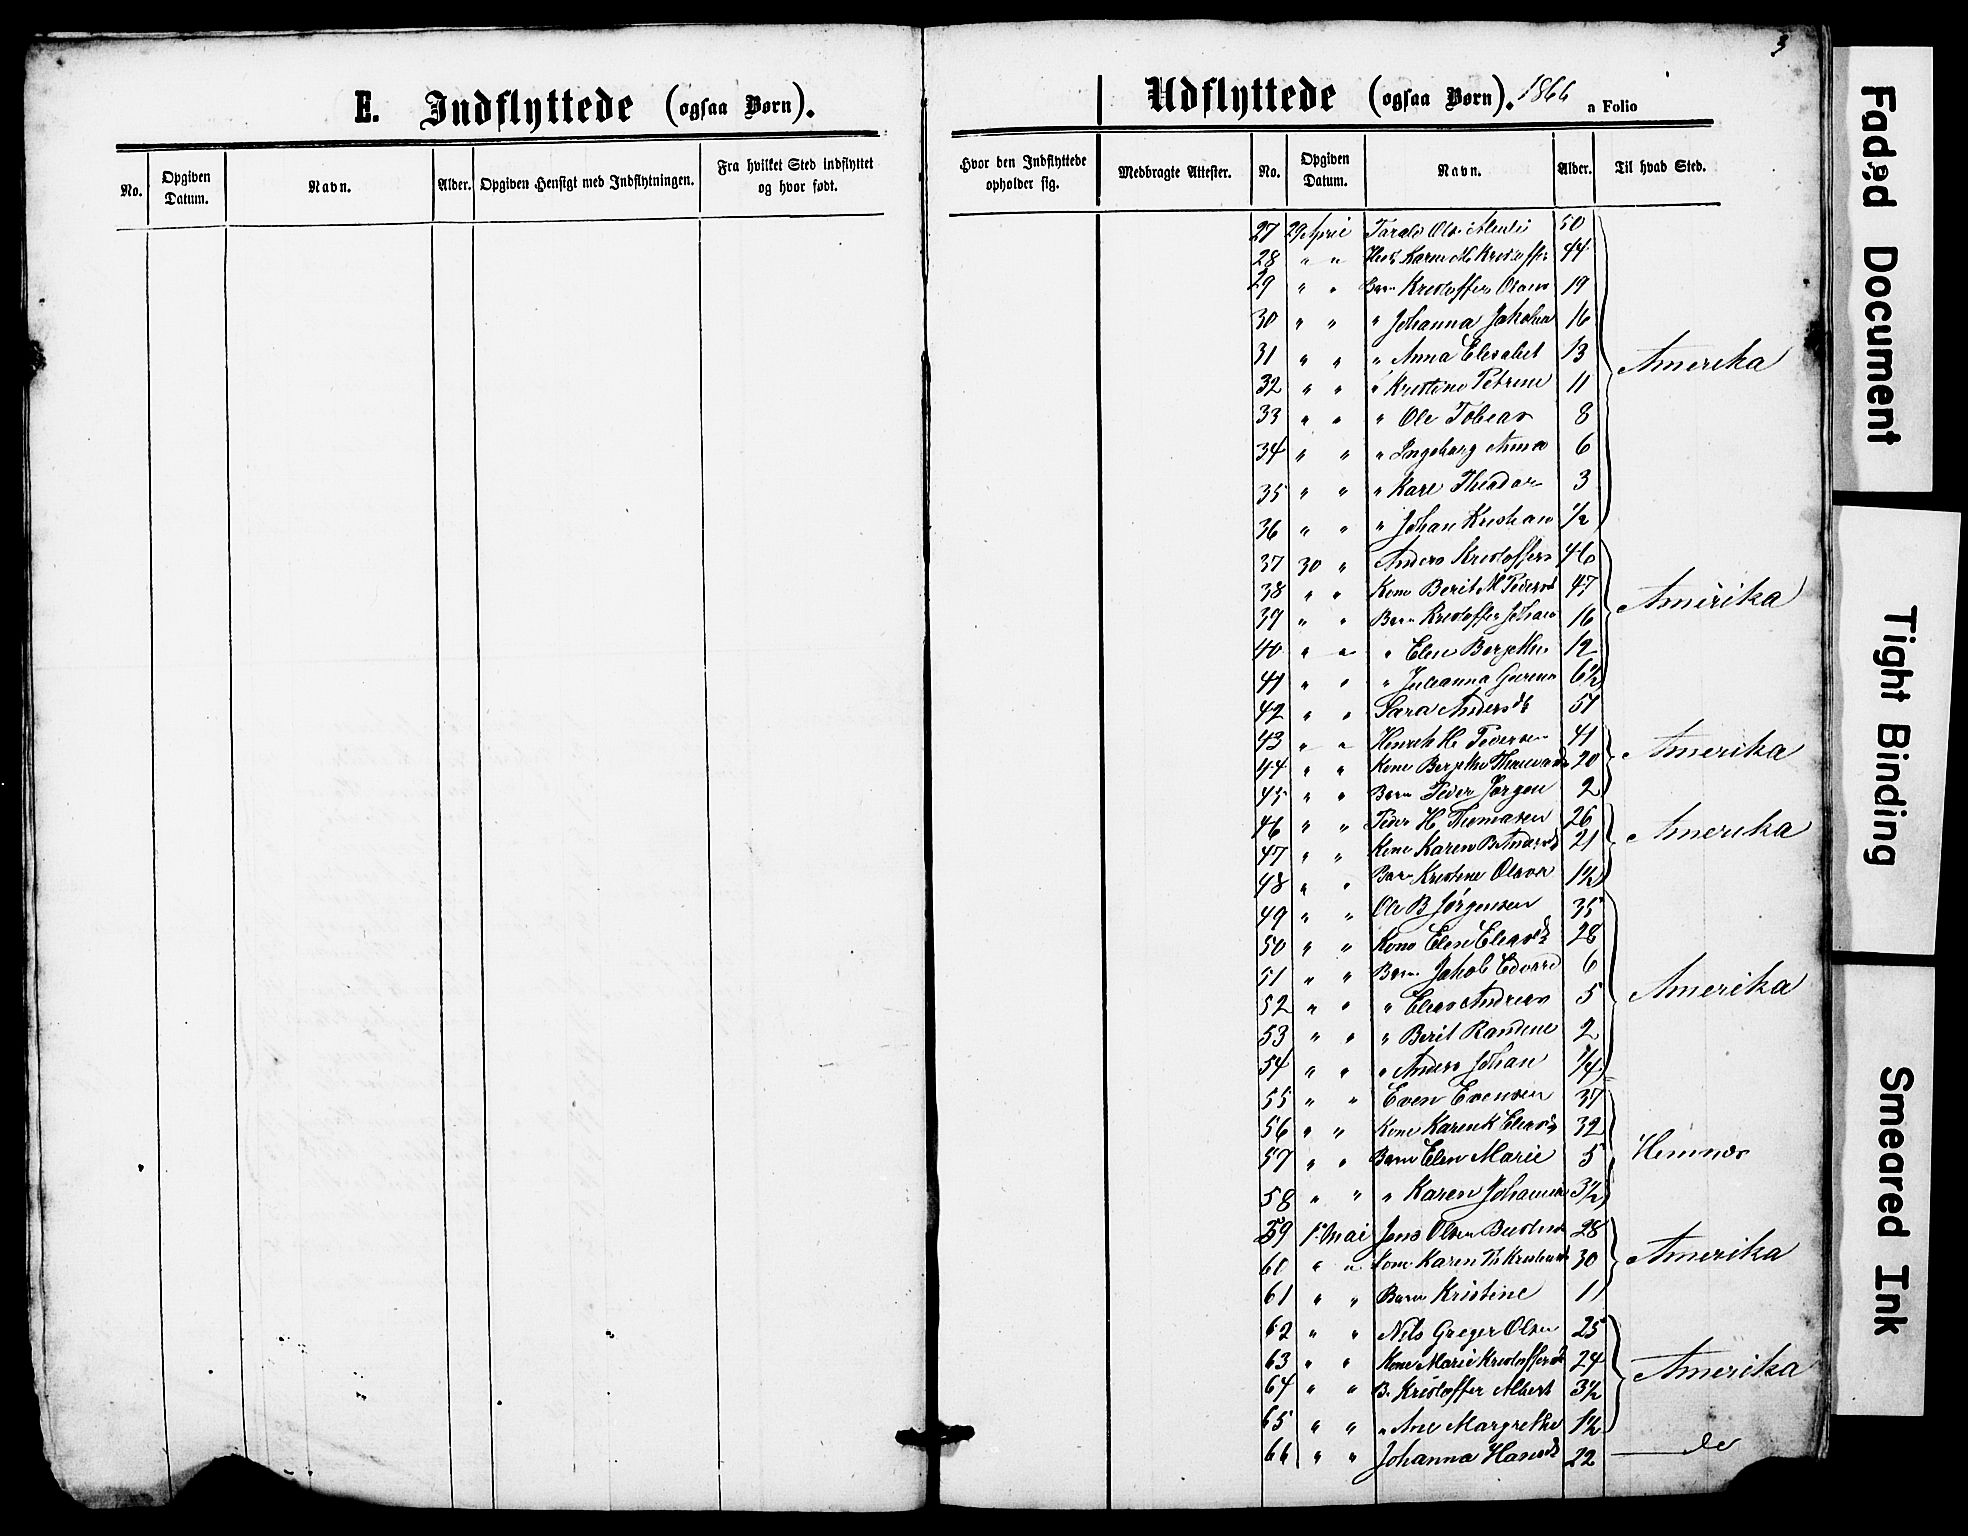 3
E. Indflyttede (ogsaa Børn).
Udflyttede (ogsaa Børn). 1866 a Folio
No. Opgiven Datum. Navn. Alder. Opgiven Hensigt med Indflytningen. Fra hvilket Sted indflyttet og hvor født.
Hvor den Indflyttede opholder sig. Medbragte Attester. No. Opgiven Datum. Navn. Alder. Til hvad Sted.
27 29 April Olsen 50
28 " " Karen M. 44
29 " " Barn Kristoffer 19
30 " " " Johanna 16
31 " " " Anna Elisabet 13
Amerika
32 " " " Kristine Petrine 11
33 " " " Ole Tobias 8
34 " " " Ingeborg Anna 6
35 " " " Karl Theodor 3
36 " " " Johan Kristian 1/2
37 30 " Anders Kristoffers 46
38 " " Kone Berit M Pedersd 47
Amerika
39 " " Barn Kristoffer Johan 16
40 " " " Elen 12
41 " " " Julianna 6 1/2
42 " " Sara Andersd 51
43 " " Henrik H. Pedersen 41
Amerika
44 " " Kone 20
45 " " Barn Peder Jørgen 2
46 " " Peder H. Thomasen 26
Amerika
47 " " Kone Karen B Andersd 21
48 " " Barn Kristine 1 1/2
49 " " Ole B Jørgensen 35
50 " " Kone Elen Eliasd 28
51 " " Barn Jakob Edvard 6
Amerika
52 " " " Elias Andreas 5
53 " " " Berit Randine 2
54 " " " Anders Johan 1/4
55 " " Even Evensen 37
56 " " Kone Karen K Eliasd 32
57 " " Barn Elen Marie 5
Hemnæs
58 " " " Karen 3 1/2
59 1 Mai Jens Olsen 28
Amerika
60 " " Kone Karen 30
61 " " Barn Kristine 1
62 " " Nils Greger Olsen 25
63 " " Kone Marie Kristoffersd 24
Amerika
64 " " B. Kristoffer Albert 3 1/2
65 " " " Ane Margrethe 1 1/2
66 " " Johanna Hansd 22
do
Faded Document
Tight Binding
Smeared Ink